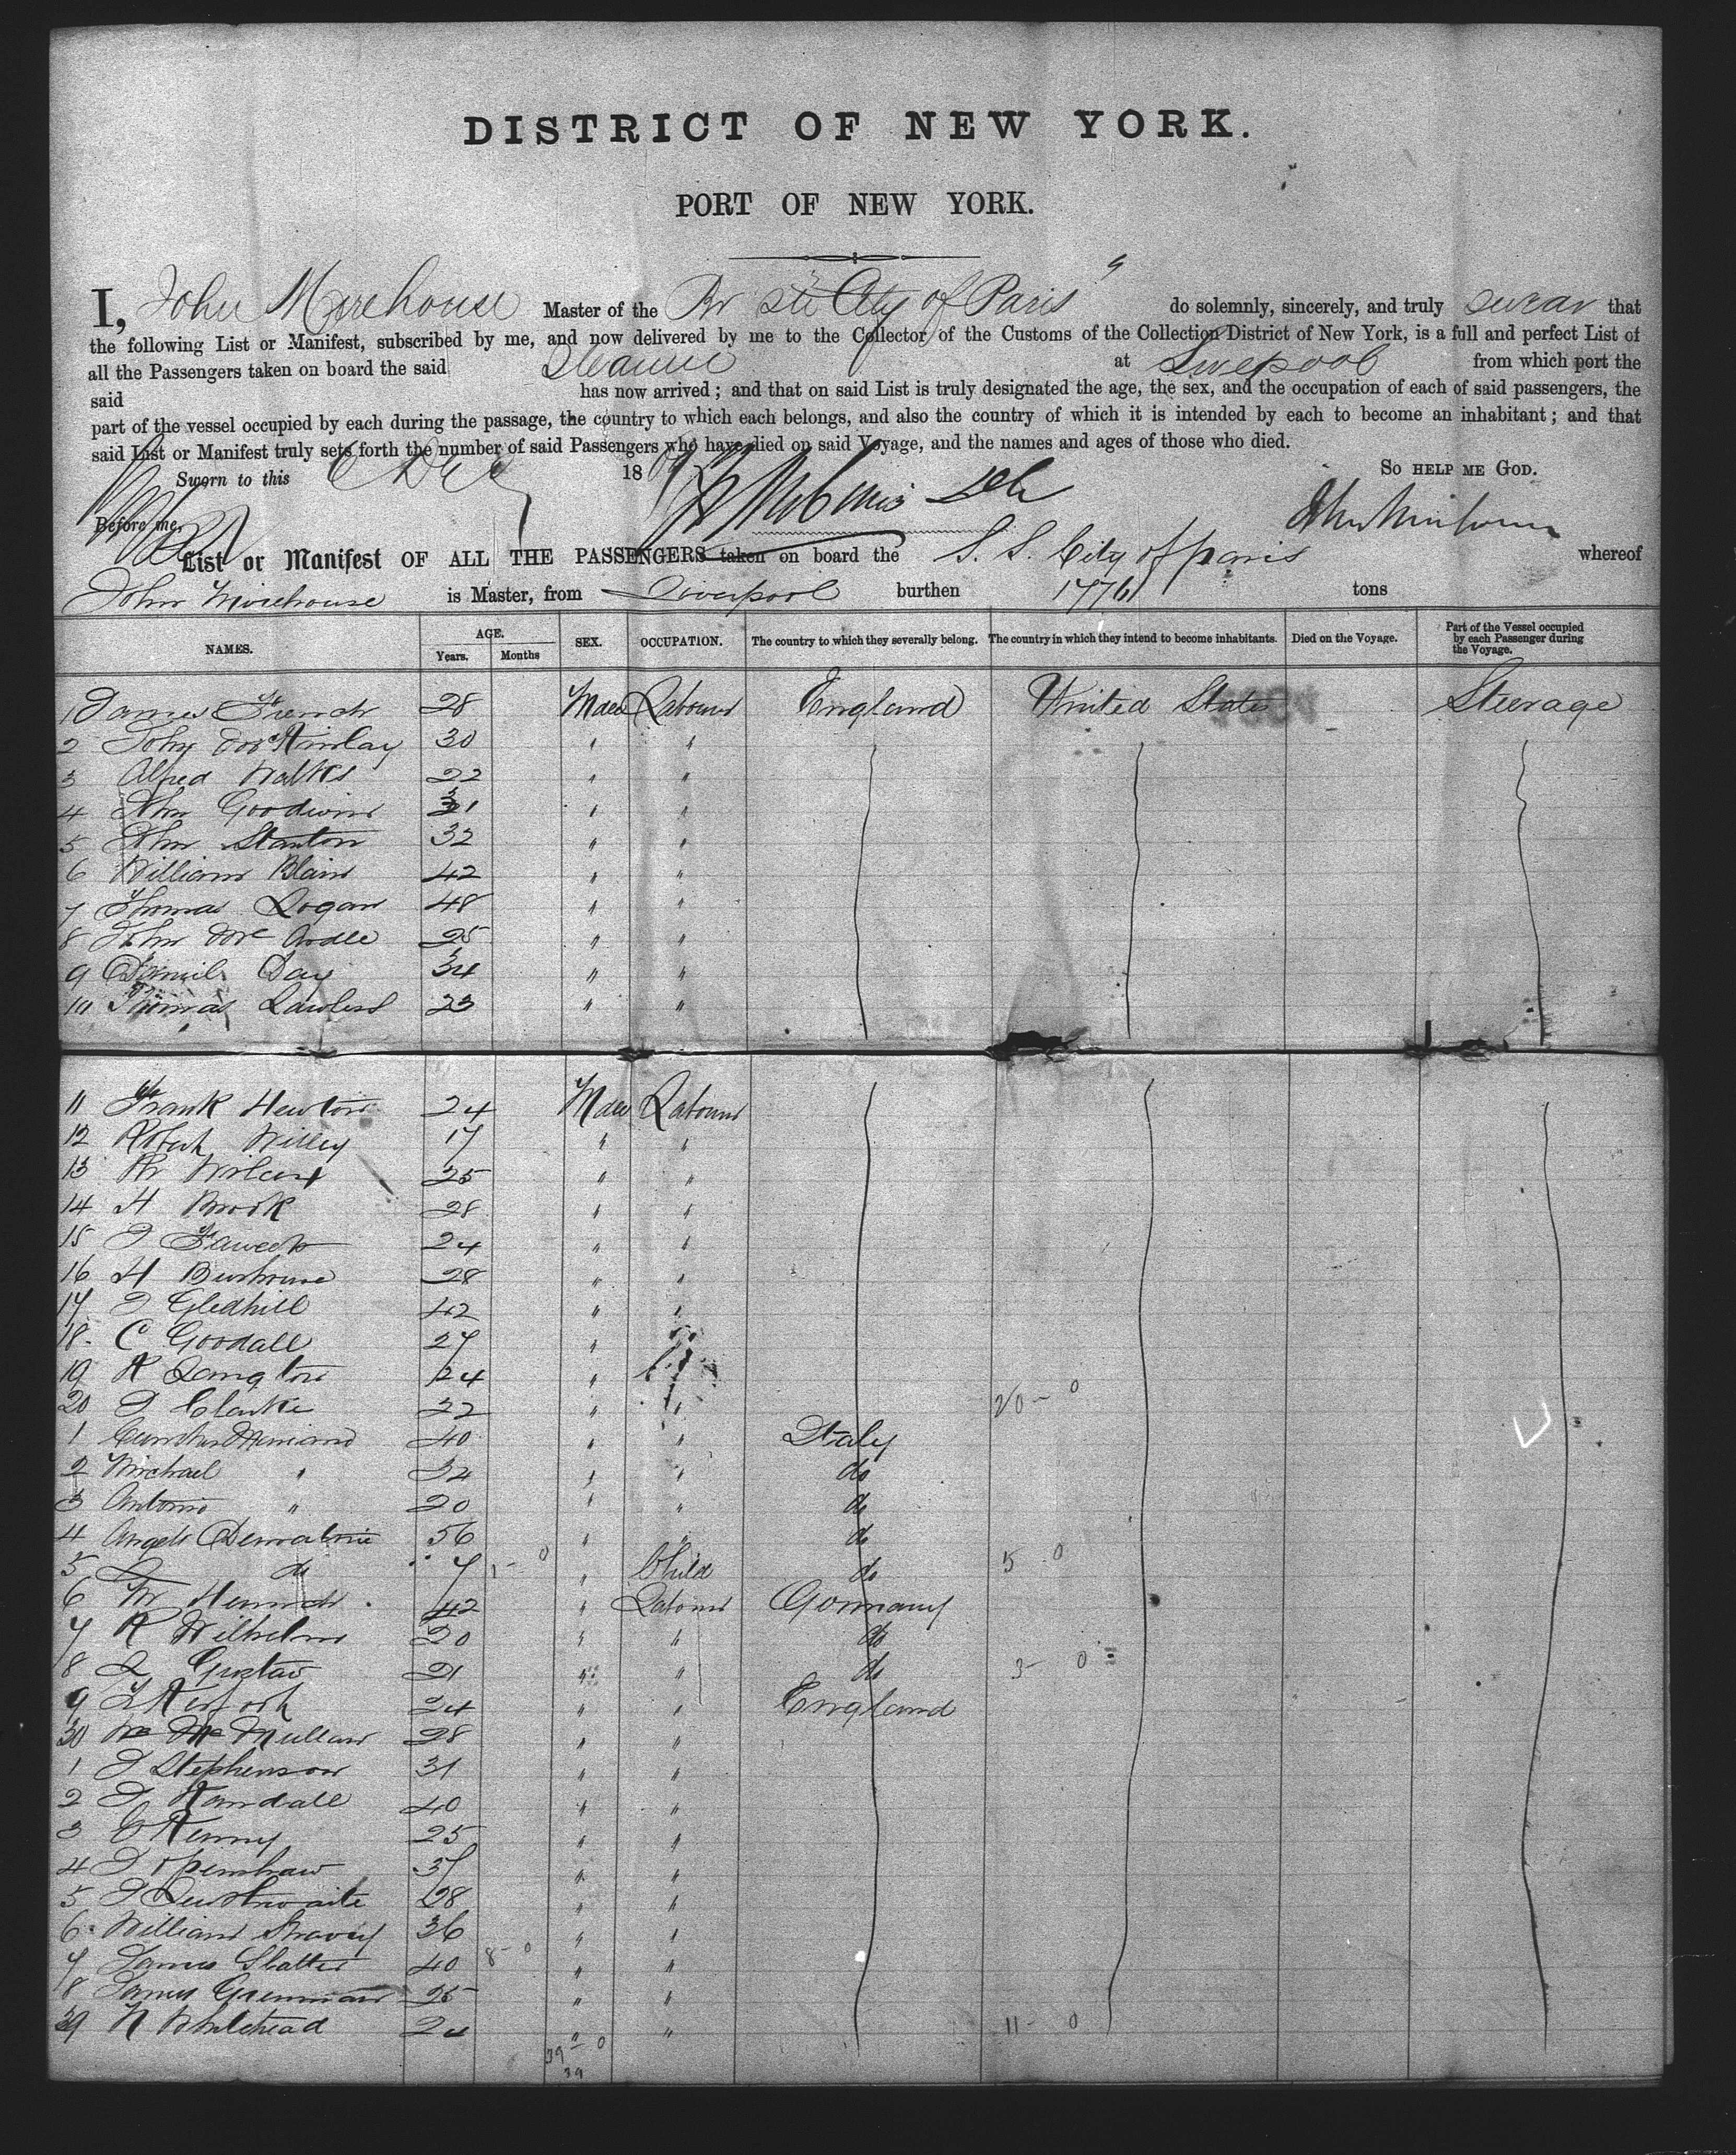 DISTRICT OF NEW YORK.
PORT OF NEW YORK.
I, John Mirehouse Master of the Br Str City of Paris do solemnly, sincerely, and truly swear that
the following List or Manifest, subscribed by me, and now delivered by me to the Collector of the Customs of the Collection District of New York, is a full and perfect List of
all the Passengers taken on board the said Steamer at Liverpool from which port the
said has now arrived; and that on said List is truly designated the age, the sex, and the occupation of each of said passengers, the
part of the vessel occupied by each during the passage, the country to which each belongs, and also the country of which it is intended by each to become an inhabitant; and that
said List or Manifest truly sets forth the number of said Passengers who have died on said Voyage, and the names and ages of those who died.
Sworn to this 6 Dec 18 So HELP ME GOD.
Before me, John Mirehouse
List or Manifest OF ALL THE PASSENGERS taken on board the S. S. City of paris whereof
John Mirehouse is Master, from Liverpool burthen 1776 tons
NAMES. AGE. Years. Months SEX. OCCUPATION. The country to which they severally belong. The country in which they intend to become inhabitants. Died on the Voyage. Part of the Vessel occupied by each Passenger during the Voyage.
1 James French 28 Male Labourer England United States Steerage
2 John McKinlay 30 " "
3 Alfred 22 " "
4 John Goodwin 31 " "
5 John Stanton 32 " "
6 William Blain 42 " "
7 Thomas Logan 48 " "
8 John Mc Ardle 25 " "
9 Daniel Day 34 " "
10 Thomas Lawless 23 " "
11 Frank Newton 24 Male Labourer
12 Robert Willey 17 " "
13 Wilcox 25 " "
14 H Brook 28 " "
15 J Fawcett 24 " "
16 H 28 " "
17 J Gledhill 42 " "
18 C Goodall 27 "
19 R Langton 24 "
20 J Clarke 22 " " 20 - 0
1 40 " " Italy
2 Michael " " " do
3 Antonio " 20 " " do
4 Angelo 56 " " do
5 do 7 1 - 0 " Child do 5 0
6 Heinrich 42 " Labourer Germany
7 R Wilhelm 20 " " do
8 L Gustav 21 " " do 3 - 0
9 24 " " England
30 Wm Mc Mullan 28 " "
1 J Stephenson 31 " "
2 J Randall 40 " "
3 Kenny 25 " "
4 J Openshaw 37 " "
5 J 28 " "
6 William 36 " "
7 James Slatter 40 8 - 0 " "
8 James Grennan 25 " "
39 N Whitehead 24 " " 11 - 0
39 - 0
39